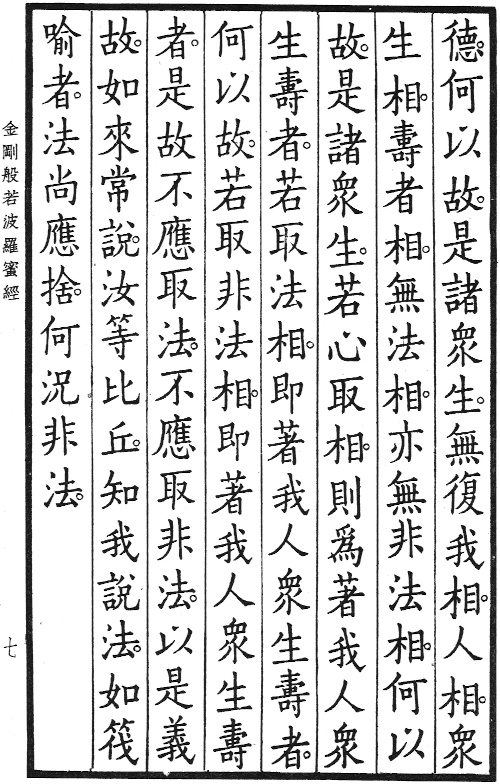 德。何以故。是諸眾生。無復我相。人相。眾
生相。壽者相。無法相。亦無非法相。何以
故。是諸眾生。若心取相。則為著我人眾
生壽者。若取法相。即著我人眾生壽者。
何以故。若取非法相。即著我人眾生壽
者。是故不應取法。不應取非法。以是義
故。如來常說。汝等比丘。知我說法。如筏
喻者。法尚應捨。何況非法。
金剛般若波羅蜜經
七